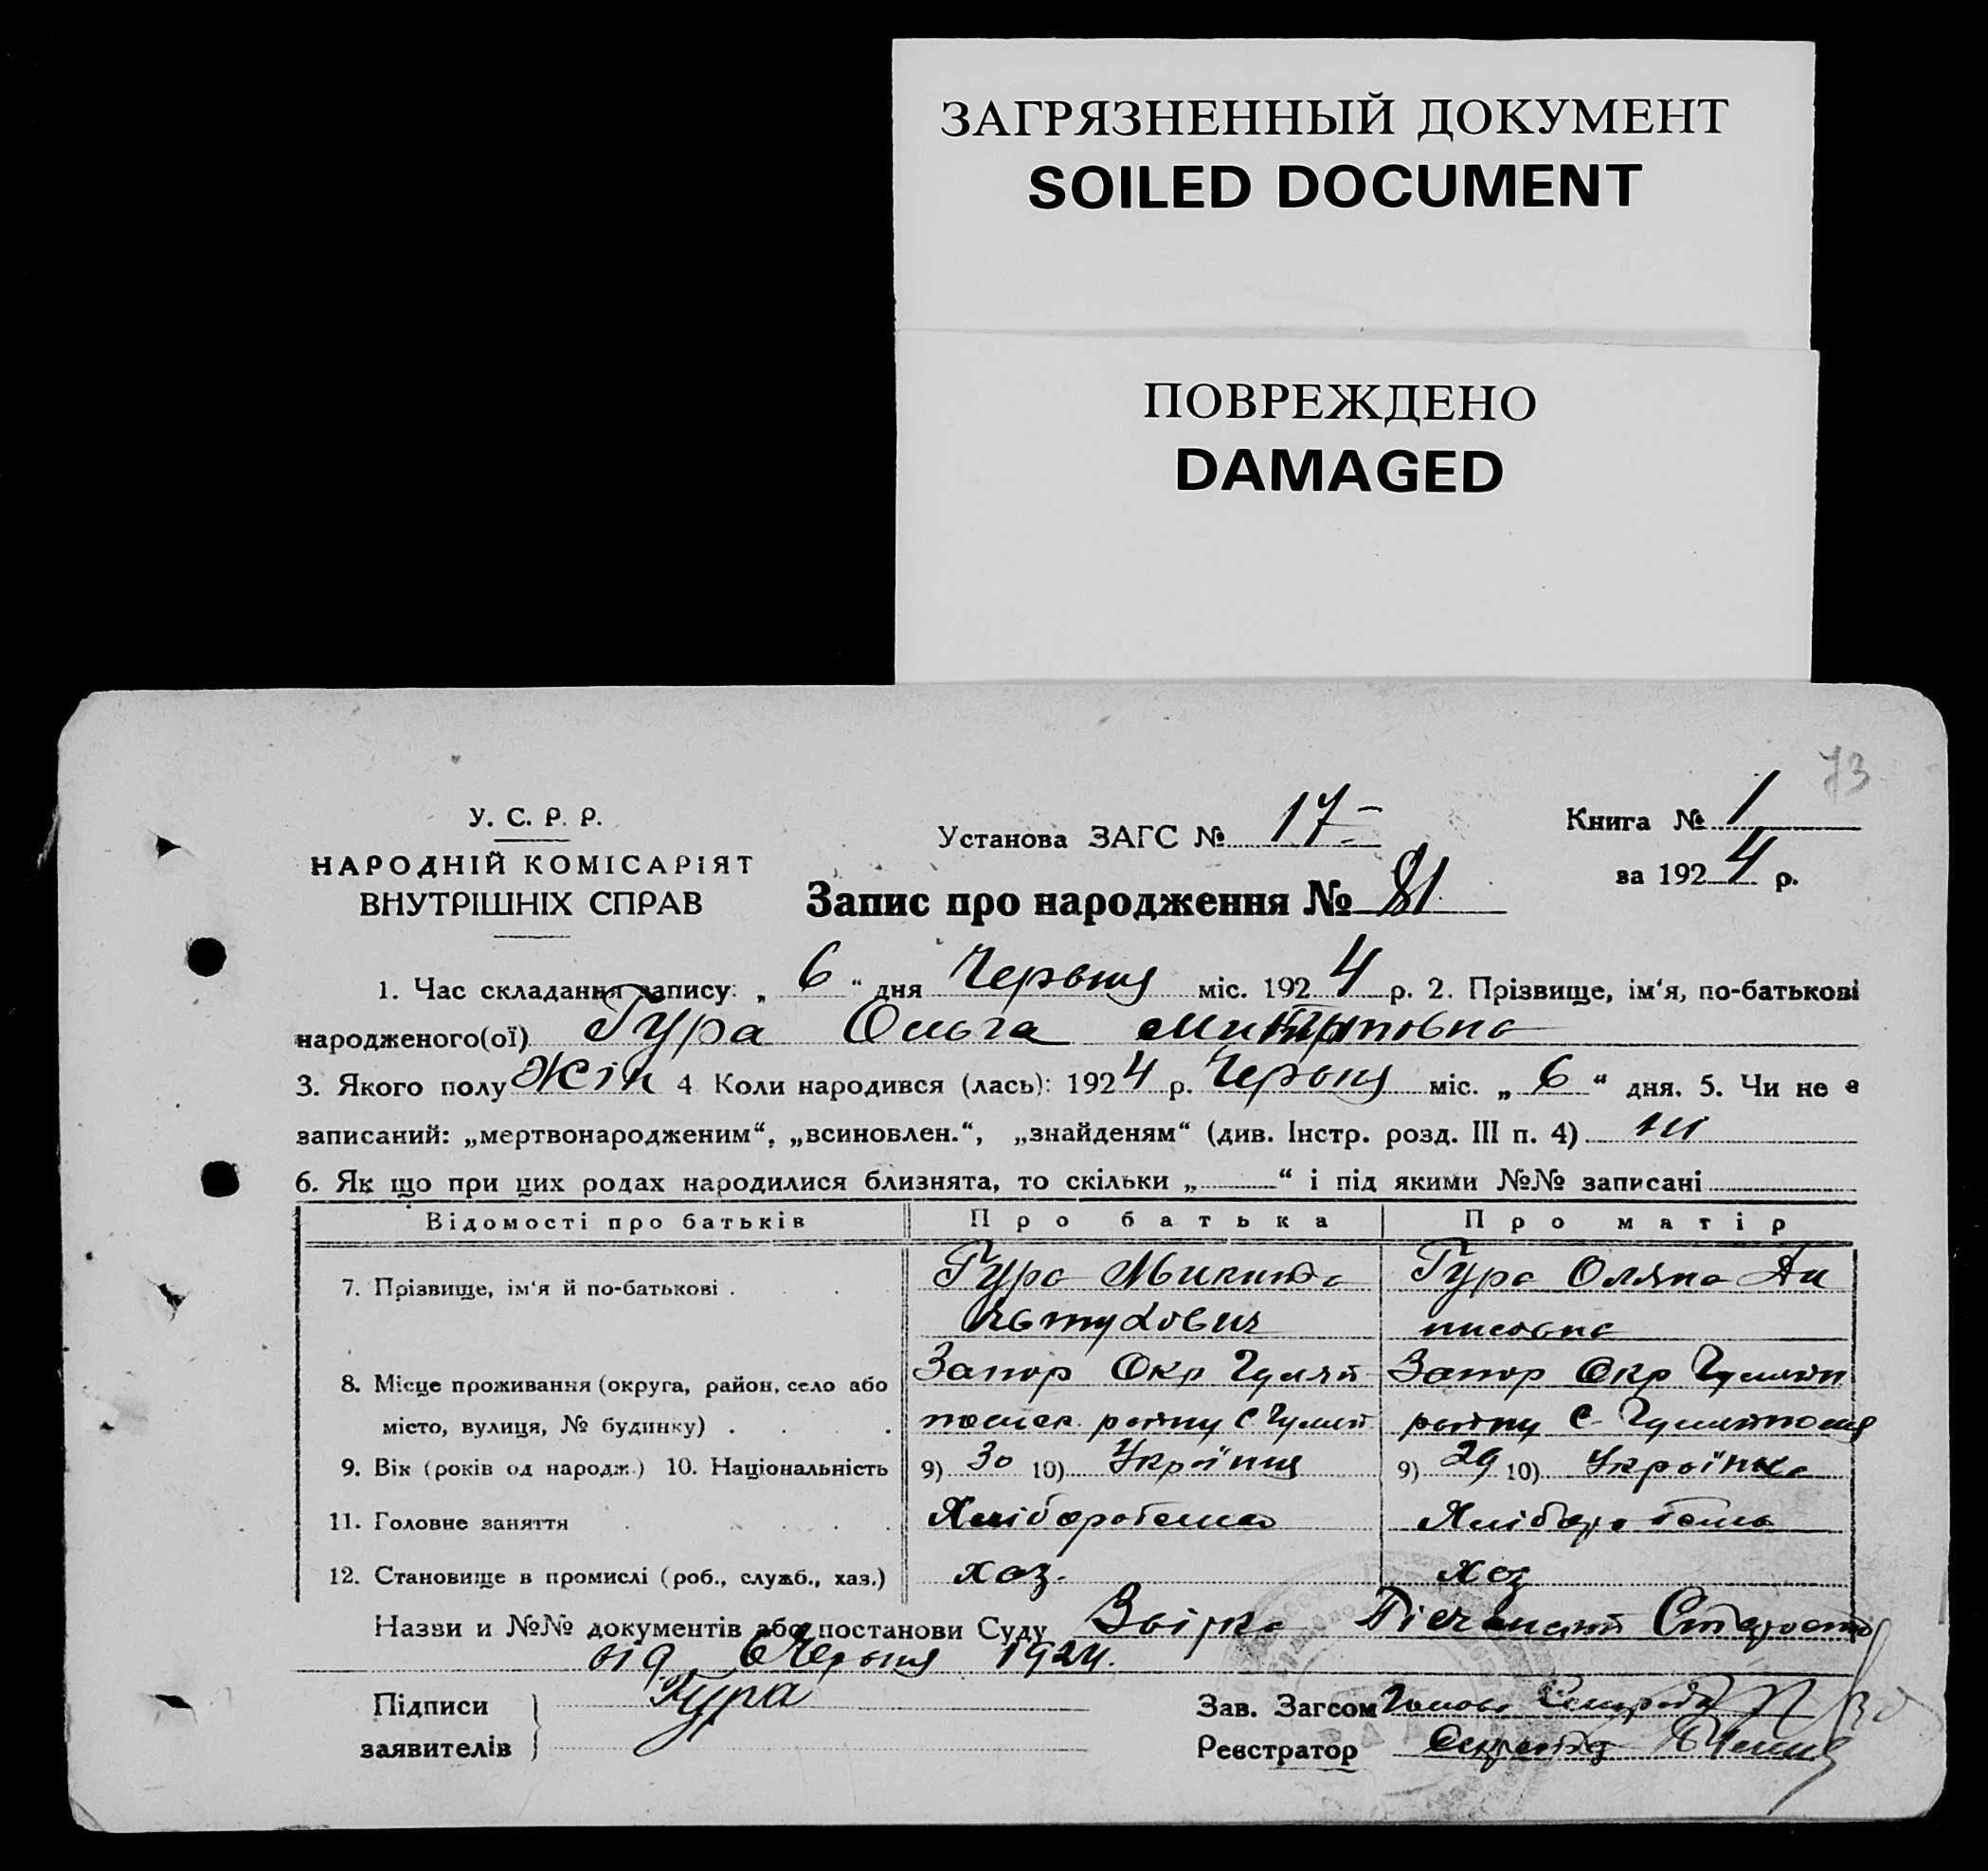 ЗАГРЯЗНЕННЫЙ ДОКУМЕНТ
SOILED DOCUMENT
ПОВРЕЖДЕНО
DAMAGED
73
У. С. Р. Р.
НАРОДНІЙ КОМІСАРІЯТ
ВНУТРІШНІХ СПРАВ
Установа ЗАГС № 17
Книга № 1
за 1924 р.
Запис про народження № 81
1. Час складання запису: „ 6 “ дня Червня міс. 1924 р. 2. Прізвище, ім'я, по-батькові
народженого(ої) Гура Ольга
3. Якого полу Жін 4 Коли народився (лась): 1924 р. Червня міс. „ 6 “ дня. 5. Чи не є
записаний: „мертвонародженим“, „всиновлен.“, „знайденям“ (див. Інстр. розд. III п. 4) ні
6. Як що при цих родах народилися близнята, то скільки „ “ і під якими №№ записані
Відомості про батьків Про батька Про матір
7. Прізвище, ім'я й по-батькові . Гура Микита Гура Оляна Ан
8. Місце проживання (округа, район, село або Запор Окр Гуляй Запор Окр Гуляйп
місто, вулиця, № будинку) . району С. Гуляй району С. Гуляйполя
9. Вік (років од народж.) 10. Національність 9) 30 10) Українц 9) 29 10) Українка
11. Головне заняття Хлібороб Хлібороб
12. Становище в промислі (роб., служб., хаз.) хаз. хаз
Назви и №№ документів або постанови Суду Звірка
від 6 Червня 1924.
Підписи Гура Зав. Загсом Голова
заявителів Реєстратор Секретар